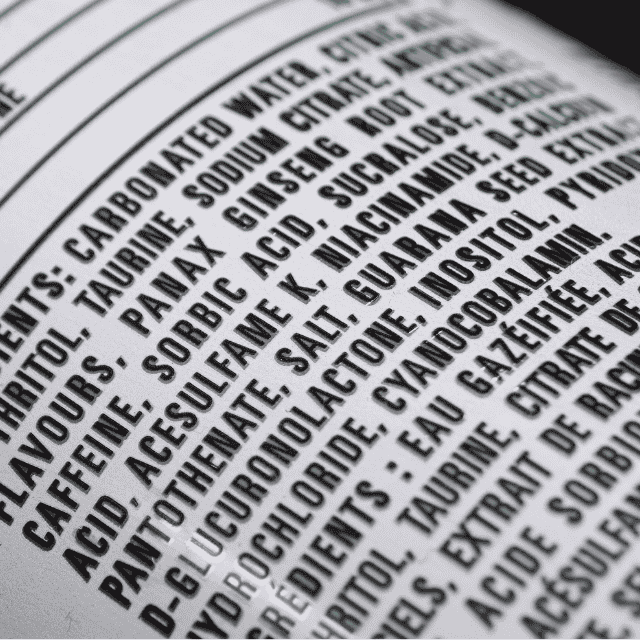 NE
ENTS: CARBONATED WATER, CITRIC ACI
THRITOL, TAURINE, SODIUM CITRATE,
FLAVOURS, PANAX GINSENG ROOT EXTRACT
CAFFEINE, SORBIC ACID, SUCRALOSE, BENZOIC
ACID, ACESULFAME K, NIACINAMIDE, D-CALCIUM
PANTOTHENATE, SALT, GUARANA SEED EXTRACT
D-GLUCURONOLACTONE, INOSITOL, PYRIDOX
HYDROCHLORIDE, CYANOCOBALAMIN.
GRÉDIENTS : EAU GAZÉIFIÉE, ACI
HRITOL, TAURINE, CITRATE DE
IELS, EXTRAIT DE RACIN
ACIDE SORBIQ
ACÉSULFA